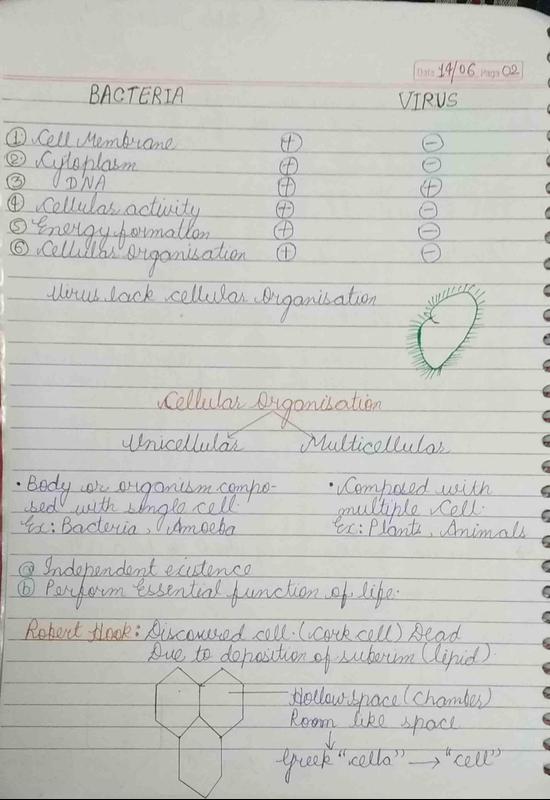 Date 14/06 Page 02
BACTERIA VIRUS
① Cell Membrane ⊕ ⊖
② Cytoplasm ⊕ ⊖
③ DNA ⊕ ⊕
④ Cellular activity ⊕ ⊖
⑤ Energy formation ⊕ ⊖
⑥ Cellular Organisation ⊕ ⊖
Virus lack cellular Organisation
Cellular Organisation
Unicellular Multicellular
• Body or organism compo-
sed with single cell.
Ex: Bacteria, Amoeba
• Composed with
multiple cell.
Ex: Plants, Animals
ⓐ Independent existence
ⓑ Perform Essential function of life.
Robert Hook: Discovered cell. (cork cell) Dead
Due to deposition of suberim (lipid)
Hollow space (chamber)
Room like space
↓
Greek "cella" → "cell"